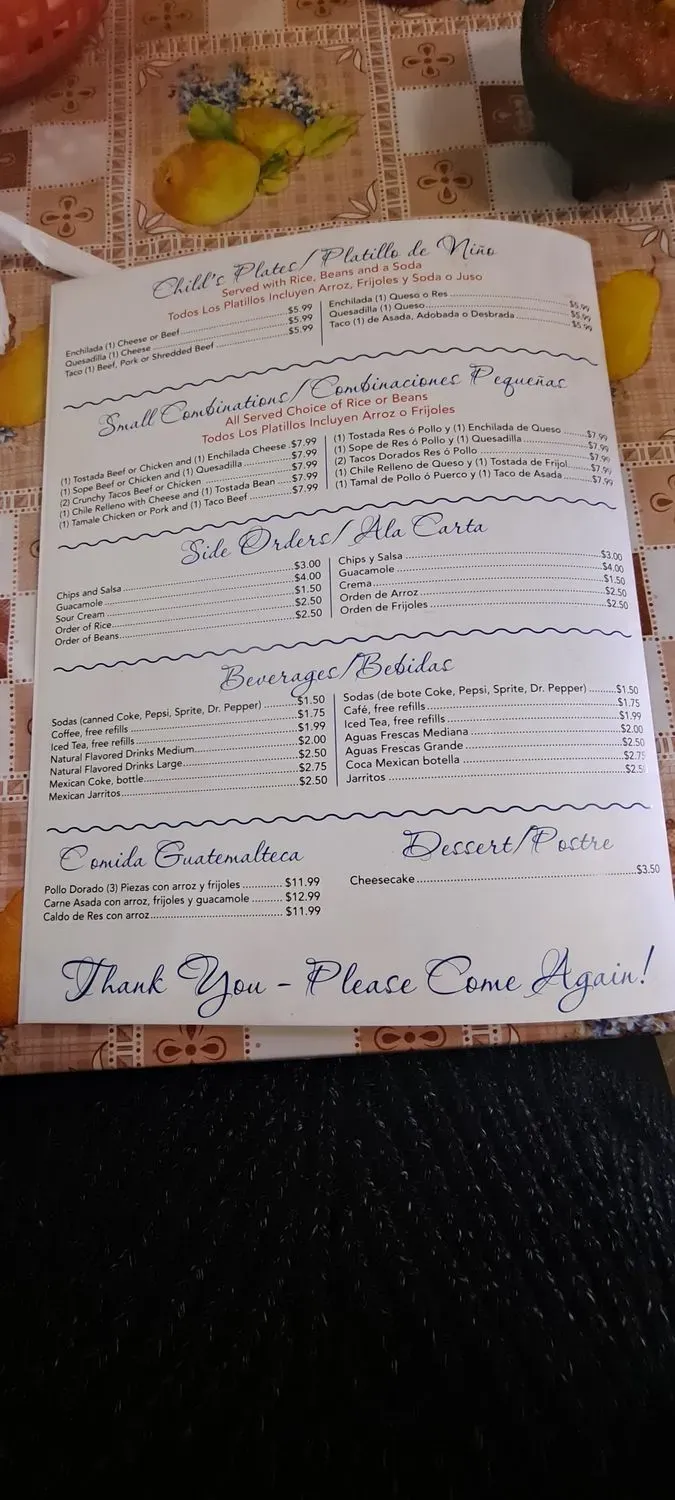 Child's Plates/Platillo de Niño
Served with Rice, Beans and a Soda
Todos Los Platillos Incluyen Arroz, Frijoles y Soda o Juso
Enchilada (1) Cheese or Beef $5.99
Quesadilla (1) Cheese $5.99
Taco (1) Beef, Pork or Shredded Beef $5.99
Enchilada (1) Queso o Res $5.99
Quesadilla (1) Queso $5.99
Taco (1) de Asada, Adobada o Desbrada $5.99
Small Combinations/Combinaciones Pequeñas
All Served Choice of Rice or Beans
Todos Los Platillos Incluyen Arroz o Frijoles
(1) Tostada Beef or Chicken and (1) Enchilada Cheese $7.99
(1) Sope Beef or Chicken and (1) Quesadilla $7.99
(2) Crunchy Tacos Beef or Chicken $7.99
(1) Chile Relleno with Cheese and (1) Tostada Bean $7.99
(1) Tamale Chicken or Pork and (1) Taco Beef $7.99
(1) Tostada Res ó Pollo y (1) Enchilada de Queso $7.99
(1) Sope de Res ó Pollo y (1) Quesadilla $7.99
(2) Tacos Dorados Res ó Pollo $7.99
(1) Chile Relleno de Queso y (1) Tostada de Frijol $7.99
(1) Tamal de Pollo ó Puerco y (1) Taco de Asada $7.99
Side Orders/Ala Carta
Chips and Salsa $3.00
Guacamole $4.00
Sour Cream $1.50
Order of Rice $2.50
Order of Beans $2.50
Chips y Salsa $3.00
Guacamole $4.00
Crema $1.50
Orden de Arroz $2.50
Orden de Frijoles $2.50
Beverages/Bebidas
Sodas (canned Coke, Pepsi, Sprite, Dr. Pepper) $1.50
Coffee, free refills $1.75
Iced Tea, free refills $1.99
Natural Flavored Drinks Medium $2.00
Natural Flavored Drinks Large $2.50
Mexican Coke, bottle $2.75
Mexican Jarritos $2.50
Sodas (de bote Coke, Pepsi, Sprite, Dr. Pepper) $1.50
Café, free refills $1.75
Iced Tea, free refills $1.99
Aguas Frescas Mediana $2.00
Aguas Frescas Grande $2.50
Coca Mexican botella $2.75
Jarritos $2.5
Comida Guatemalteca
Pollo Dorado (3) Piezas con arroz y frijoles $11.99
Carne Asada con arroz, frijoles y guacamole $12.99
Caldo de Res con arroz $11.99
Dessert/Postre
Cheesecake $3.50
Thank You - Please Come Again!